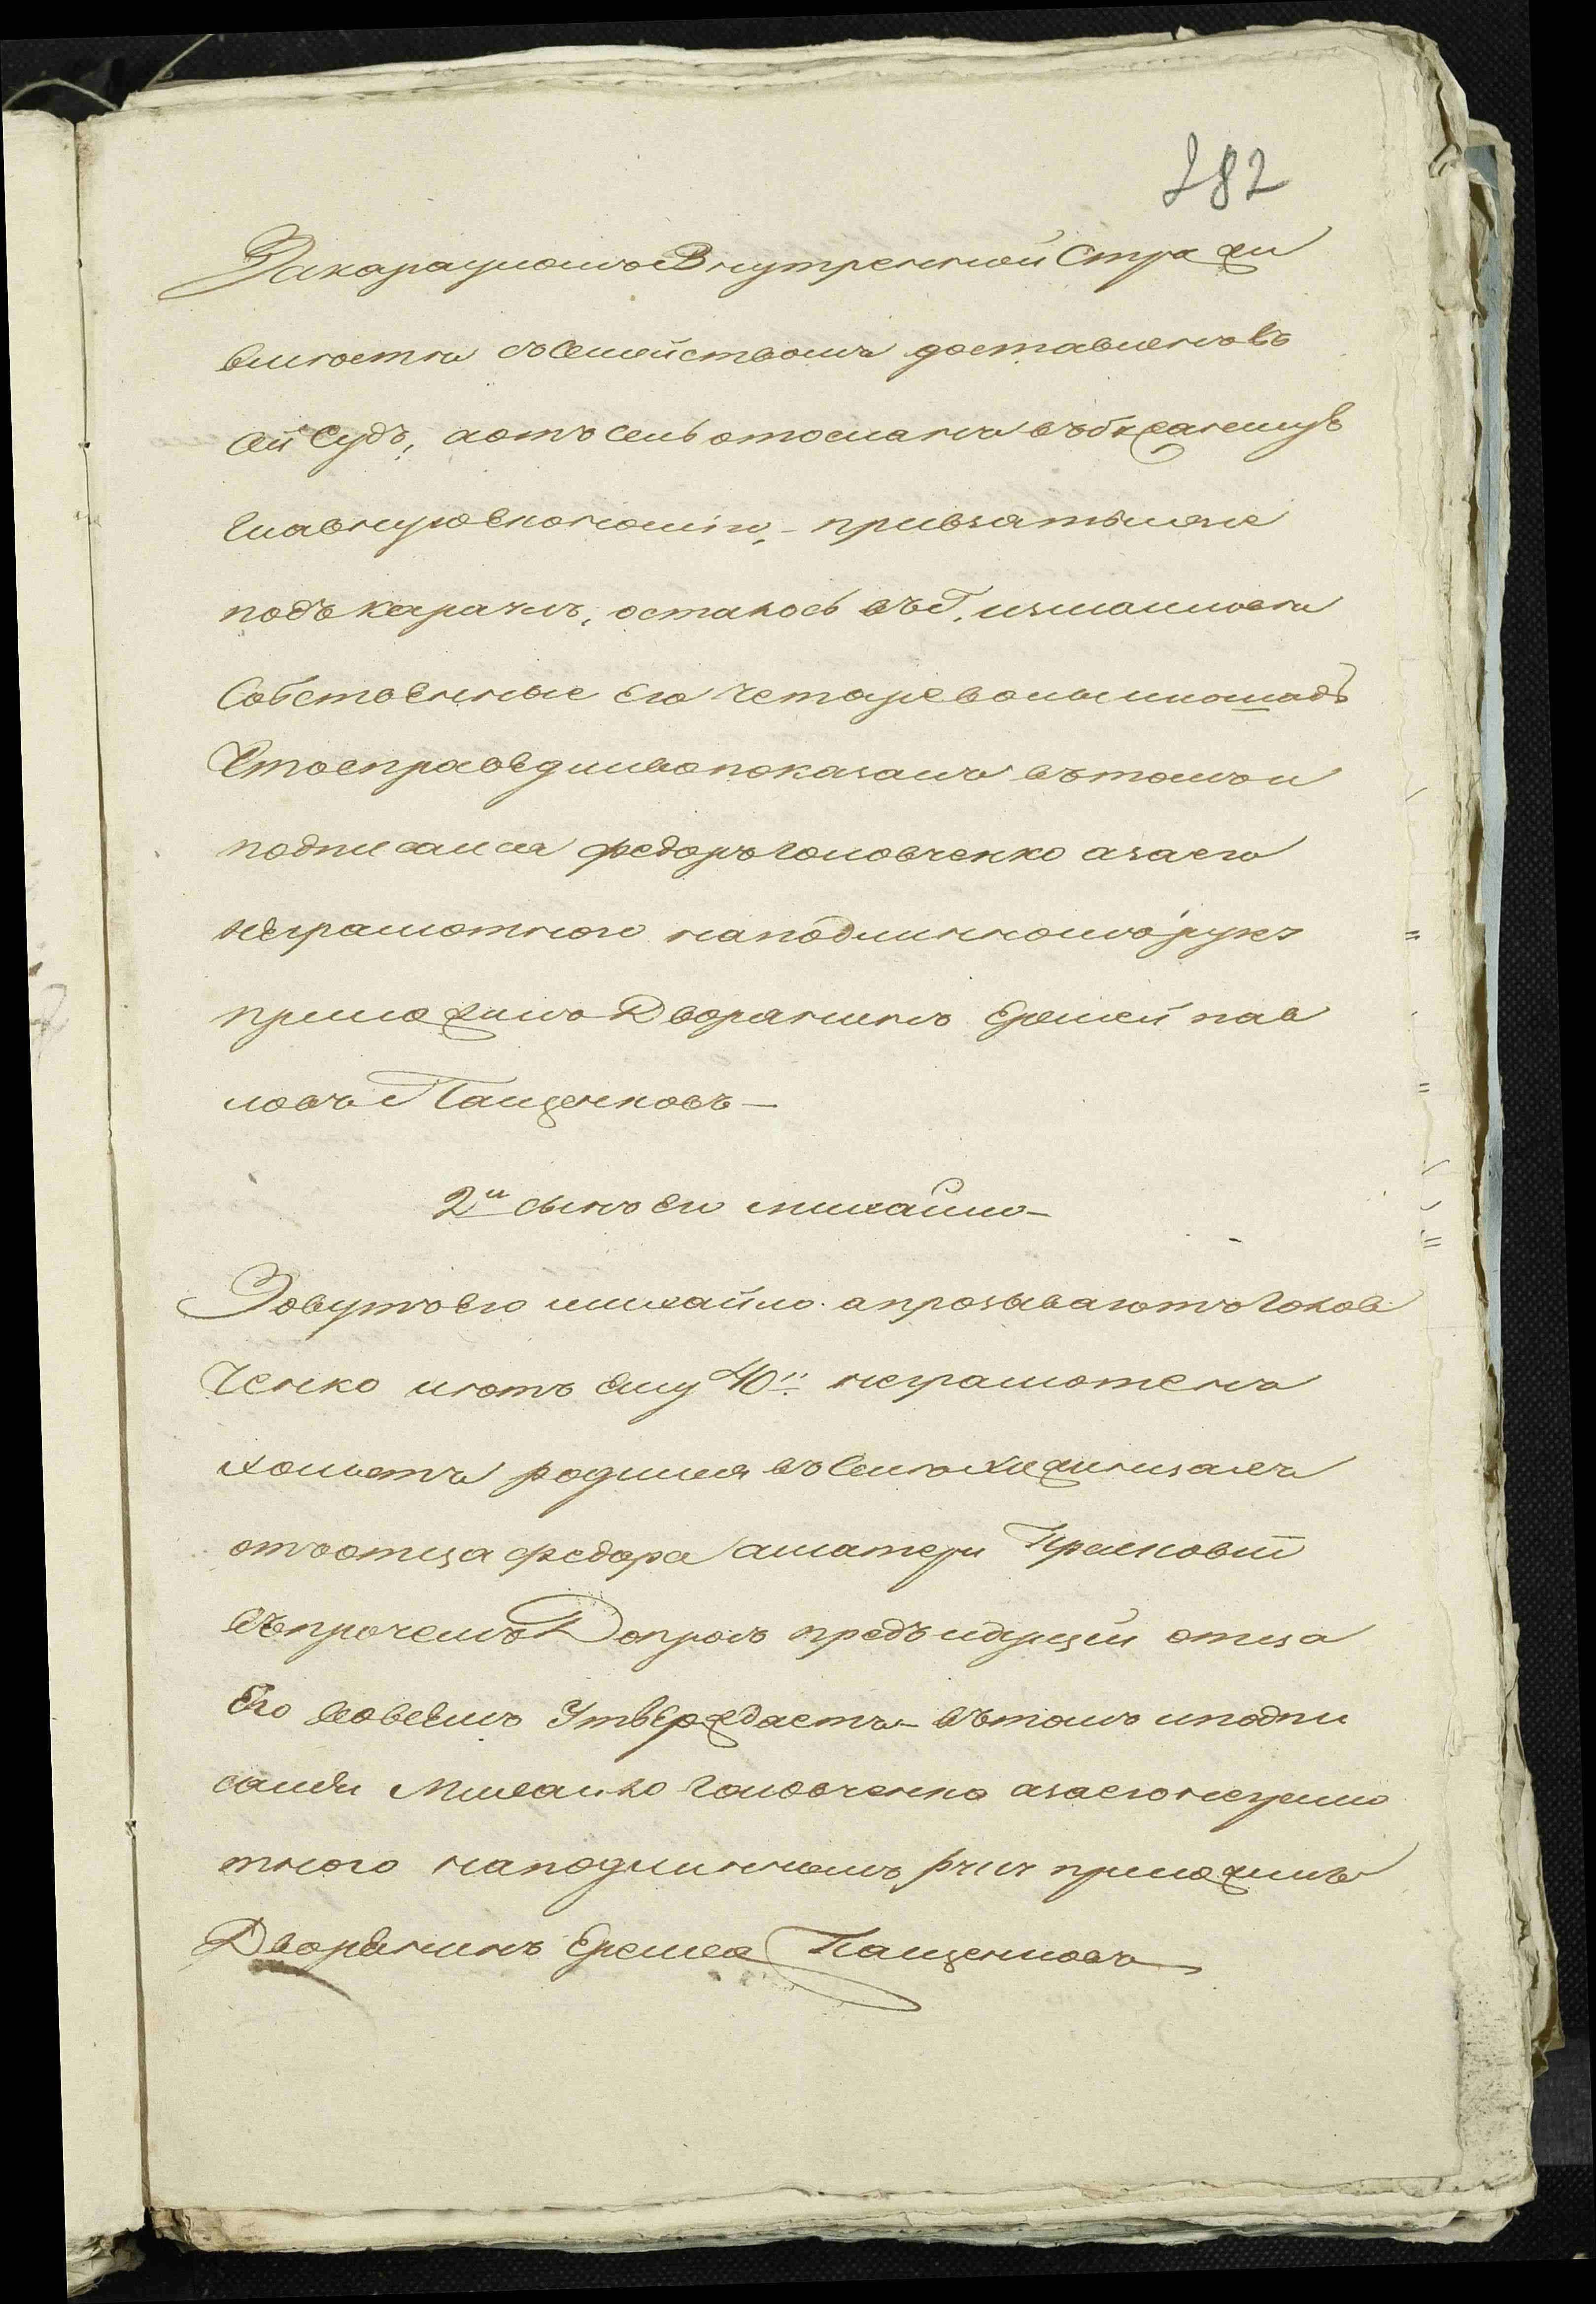 282
Закарауломъ Внутренней Стражи
вместе съ Семействомъ доставленъ въ
Сей Судъ, а отъ селъ отосланъ въ
Главную – при взятьи мене
подъ караулъ, осталось въ Г. Измаиле
Собственные его четыре вола и лошадь
Что справедливо показалъ въ томъ и
подписался Федоръ Головченко а за его
неграмотного на подлинномъ руку
приложилъ Дворянинъ Еремей Пав
ловъ Пащенковъ –
2й сынъ его михайло –
Зовутъ его михайло а прозываютъ Голов
ченко летъ ему 40и неграмотенъ
холостъ родился въ Селе Хижинцахъ
отъ отца федора а матери Прасковіи
въ прочемъ Допросъ предъидущей отца
Его во всемъ Утверждаетъ – въ томъ и подпи
сался Михайло Головченко а за его неграмо
тного на подлинномъ руку приложилъ
Дворянинъ Еремей Пащенковъ